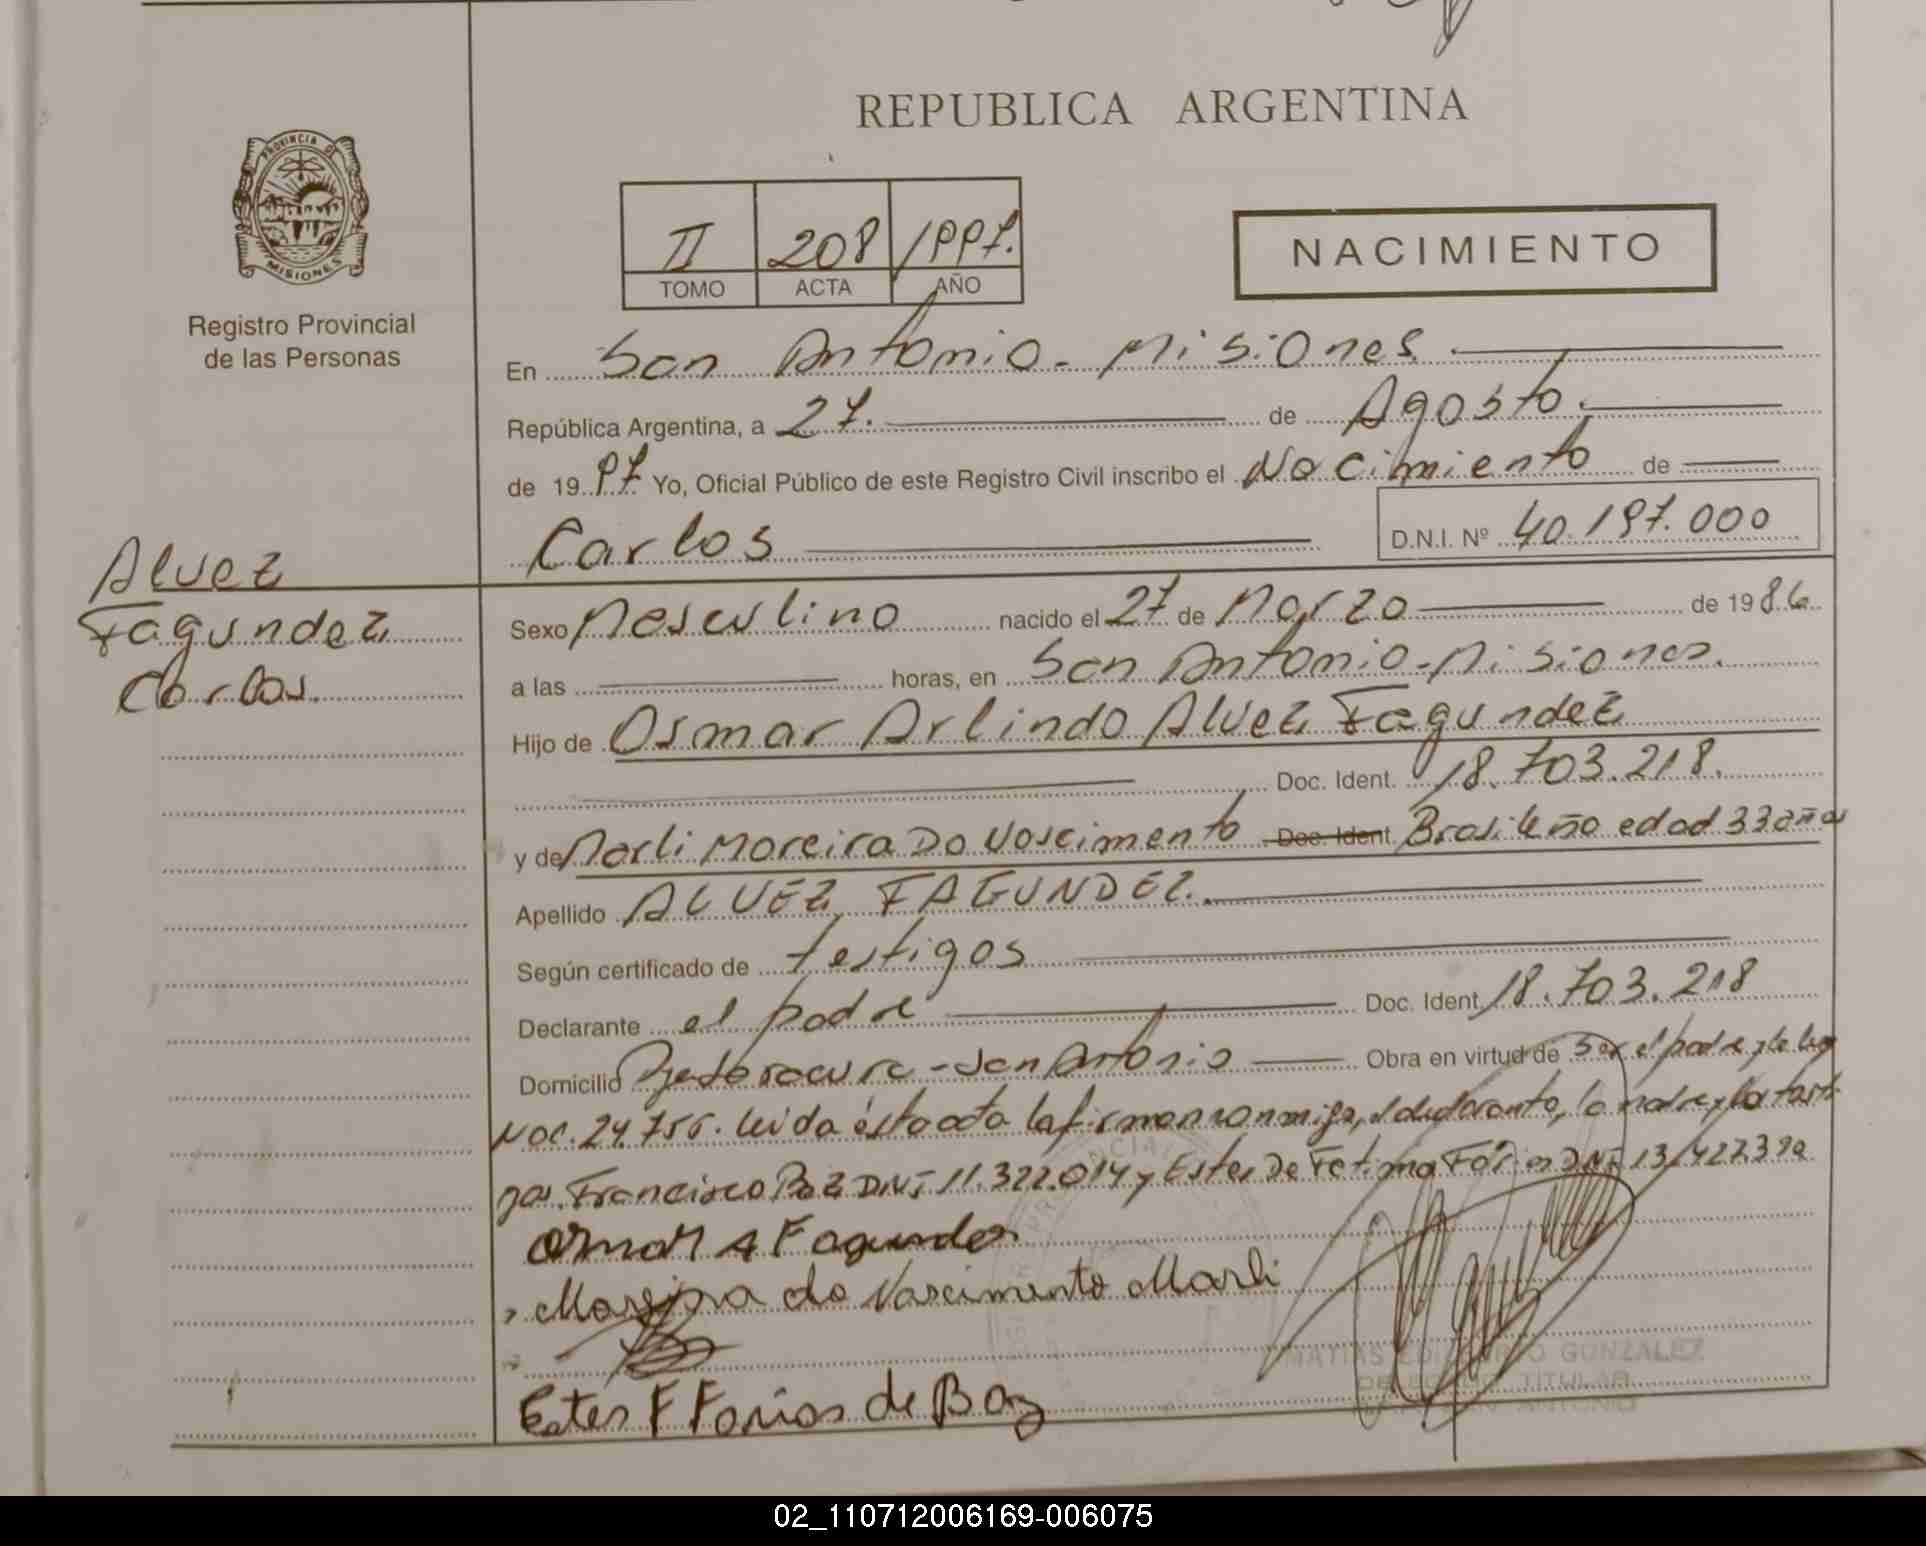 REPUBLICA ARGENTINA
PROVINCIA DE
MISIONES
Registro Provincial
de las Personas
II 208 1997.
TOMO ACTA AÑO
NACIMIENTO
En San Antonio - Misiones
República Argentina, a 27. de Agosto.
de 1997 Yo, Oficial Público de este Registro Civil inscribo el Nacimiento de
Carlos D.N.I. Nº 40.197.000
Alvez
Fagundez
Carlos.
Sexo Masculino nacido el 27 de Marzo de 1986
a las horas, en San Antonio - Misiones.
Hijo de Osmar Arlindo Alvez Fagundez
Doc. Ident. 18.703.218.
y de Marli Moreira Do Nascimento Doc. Ident. Brasileña edad 33 años
Apellido ALVEZ FAGUNDEZ.
Según certificado de testigos
Declarante el padre Doc. Ident. 18.703.218
Domicilio San Antonio Obra en virtud de ser el padre y de ley
Nac. 24.755. leida ésta acta la firman conmigo, el declarante, la madre y los testi
gos. Francisco Baz DNI 11.322.014 y Ester De Fatima Farias DNI 13.422.
Osmar A Fagundes
Moreira do Nascimento Marli
Ester F Farias de Baz
MATIAS EDUARDO GONZALEZ
DELEGADO TITULAR
SAN ANTONIO
02_110712006169-006075